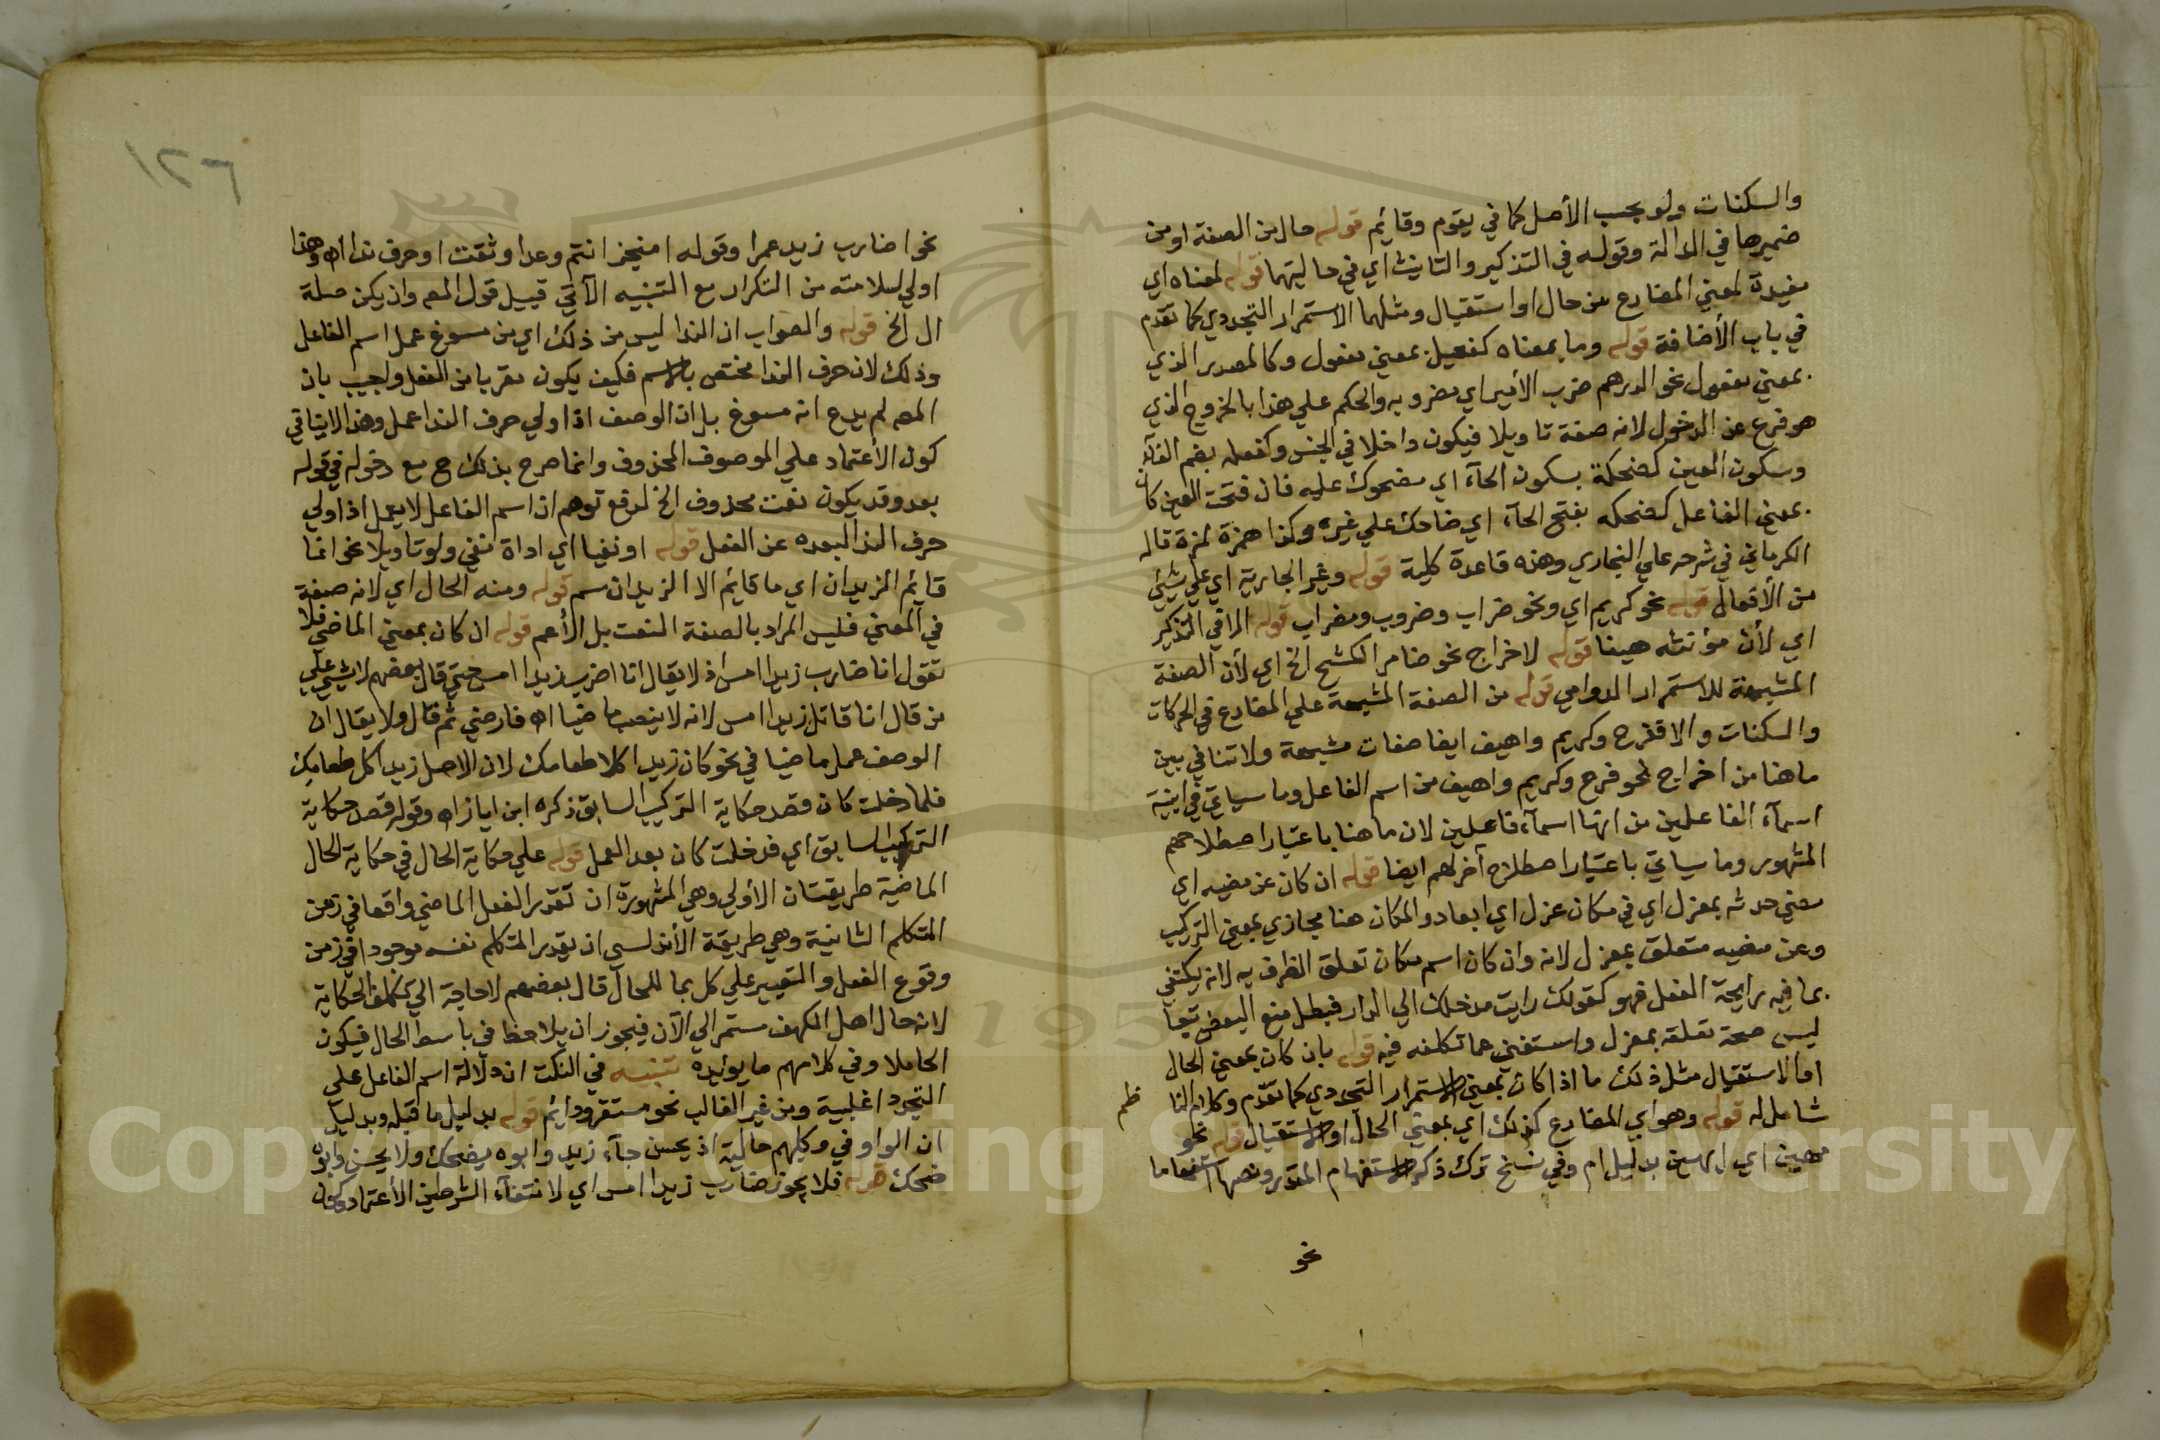 والسكنات ولو بحسب الأصل كما في يقوم وقايم قوله حال من الصفة او من
ضميرها في الدالة وقوله في التذكير والتانيث اي في حاليتهما قوله لمعناه اي
مفيدة لمعني المضارع من حال او استقبال ومثلهما الاستمرار التجددي كما تقدم
في باب الأضافة قوله وما بمعناه كفعيل بمعني مفعول وكالمصدر الذي
بمعني مفعول نحو الدرهم ضرب الأمير اي مضروبه والحكم علي هذا بالخروج الذي
هو فرع عن الدخول لانه صفة تاويلا فيكون داخلا في الجنس وكفعله بضم الفآء
وسكون العين كضحكة بسكون الحآء اي مضحوك عليه فان فتحت العين كان
بمعني الفاعل كضحكه بفتح الحآء اي ضاحك علي غيره وكذا همزة لمزة قاله
الكرماني في شرحه علي البخاري وهذه قاعدة كلية قوله وغير الجارية اي علي شيئ
من الأفعال قوله نحو كريم اي ونحو ضراب وضروب ومضراب قوله الا في التذكير
اي لأن مؤنثه هيفا قوله لاخراج نحو ضامر الكشح الخ اي لأن الصفة
المشبهة للاستمرار الدوامي قوله من الصفة المشبهة علي المضارع في الحركات
والسكنات والا ففرح وكريم واهيف ايضا صفات مشبهة ولا تنافي بين
ما هنا من اخراج نحو فرح وكريم واهيف من اسم الفاعل وما سياتي في ابنية
اسمآء الفاعلين من انها اسمآء فاعلين لان ما هنا باعتبار اصطلاحهم
المشهور وما سياتي باعتبار اصطلاح آخر لهم ايضا قوله ان كان عن مضيه اي
مضي حدثه بمعزل اي في مكان عزل اي ابعاد والمكان هنا مجازي بمعني التركيب
وعن مضيه متعلق بمعزل لانه وان كان اسم مكان تعلق الظرف به لانه يكتفي
بما فيه رايحة الفعل فهو كقولك رايت مدخلك الي الدار فبطل منع البعض تبعا
ليس صحة تعلقه بمعزل واستغني عما تكلفه فيه قوله بان كان بمعني الحال
او الاستقبال مثل ذلك ما اذا كان بمعني الاستمرار التجددي كما تقدم وكلام النا
ظم
شامل له قوله وهو اي المضارع كذلك اي بمعني الحال او الاستقبال قوله نحو
مهين اي امهين بدليل ام وفي نسخ ترك ذكر الاستفهام المقدر ونصها استفهاما
نحو
١٢٦
نحو اضارب زيد عمرا وقوله امنجز انتم وعدا وثقت او حرف ندا اه وهذا
اولي لسلامته من التكرار مع التنبيه الآتي قبيل قول المص وان يكن صلة
ال الخ قوله والصواب ان الندا ليس من ذلك اي من مسوغ عمل اسم الفاعل
وذلك لان حرف الندا مختص بالاسم فكيف يكون مقربا من الفعل واجيب بان
المص لم يدع انه مسوغ بل ان الوصف اذا ولي حرف الندا عمل وهذا لا ينافي
كون الأعتماد علي الموصوف المحذوف وانما صرح بذلك ح مع دخوله في قوله
بعد وقد يكون نعت محذوف الخ لدفع توهم ان اسم الفاعل لا يعمل اذا ولي
حرف الندا لبعده عن الفعل قوله او نفيا اي اداة نفي ولو تاويلا نحو انما
قايم الزيدان اي ما قايم الا الزيدان سم قوله ومنه الحال اي لانه صفة
في المعني فليس المراد بالصفة النعت بل الأعم قوله ان كان بمعني الماضي فلا
تقول انا ضارب زيدا امس اذ لا يقال انا اضرب زيدا امس حتي قال بعضهم لا شيئ علي
من قال انا قاتل زيدا امس لانه لا ينصب ماضيا اه فارضي ثم قال ولا يقال ان
الوصف عمل ماضيا في نحو كان زيد اكلا طعامك لان الاصل زيد اكل طعامك
فلما دخلت كان قصد حكاية التركيب السابق ذكره ابن اياز اه وقوله قصد حكاية
التركيب السابق اي فدخلت كان بعد العمل قوله علي حكاية الحال في حكاية الحال
الماضية طريقتان الأولي وهي المشهورة ان تقدر الفعل الماضي واقعا في زمن
المتكلم الثانية وهي طريقة الأندلسي ان يقدر المتكلم نفسه موجودا في زمن
وقوع الفعل والتعبير علي كل بما للحال قال بعضهم لا حاجة الي تكلف الحكاية
لان حال اهل الكهف مستمر الي الآن فيجوز ان يلاحظ في باسط الحال فيكون
عاملا وفي كلامهم ما يؤيده تنبيه في النكت ان دلالة اسم الفاعل علي
التجدد اغلبية ومن غير الغالب نحو مستقر ودائم قوله بدليل ما قبله وبدليل
ان الواو في وكلبهم حالية اذ يحسن جآء زيد وابوه يضحك ولا يحسن وابوه
ضحك قوله فلا يجوز ضارب زيدا امس اي لانتفآء الشرطين الأعتماد وكونه
1957
Copyright © King Saud University